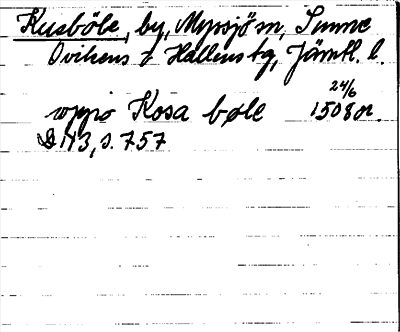 Kusböle, by, Myssjö sn, Sunne
Ovikens o Hallens tg, Jämtl. l.
24/6
uppo Kosa bøle 1508 or.
D N 3, s. 757